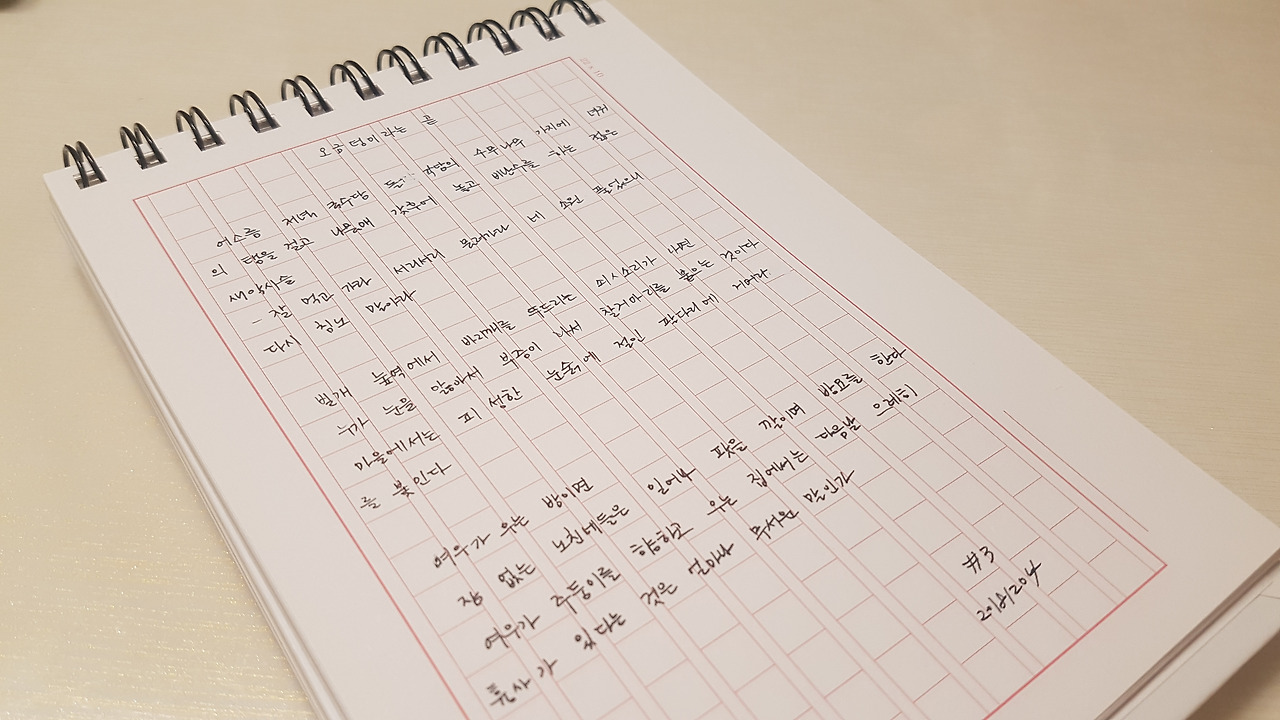 20 × 10
오금덩이라는 곧
어스름 저녁 국수당 돌각담의 수무나무 가지에 녀귀
의 탱을 걸고 나물매 갖추어 놓고 비난수를 하는 젊은
새악시들
- 잘 먹고 가라 서리서리 물러가라 네 소원 풀었으니
다시 침노 말아라
벌개 눞역에서 바리깨를 뚜드리는 쇠ㅅ소리가 나면
누가 눈을 앓아서 부증이 나서 찰거마리를 붙이는 것이다
마을에서는 피 성한 눈슭에 절인 팔다리에 거머리
를 붗인다
여우가 우는 밤이면
잠 없는 노친네들은 일어나 팟을 깔이며 방뇨를 한다
여우가 주둥이를 향하고 우는 집에서는 다음날 으레히
흉사가 있다는 것은 얼마나 무서운 말인가
#3
20181204